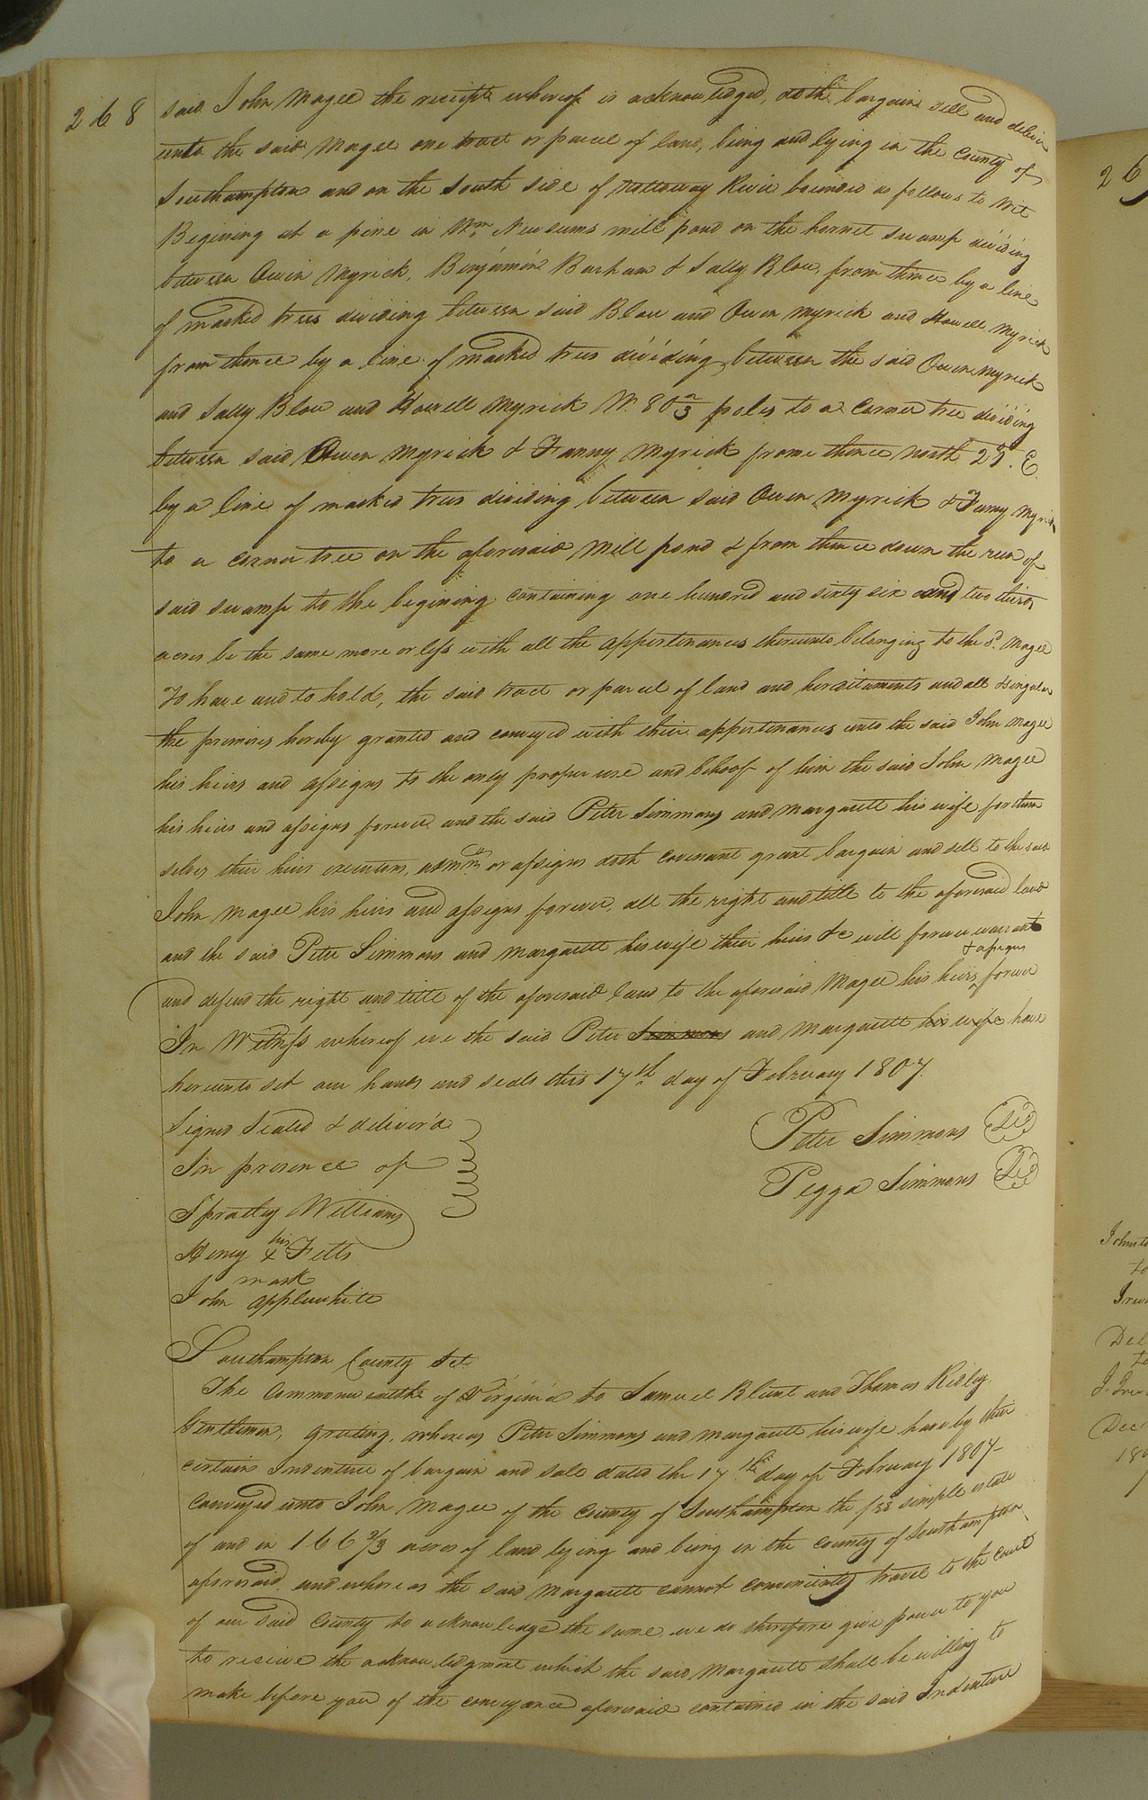 268
said John Magee the receipt whereof is acknowledged, doth bargain sell and deliver
unto the said Magee one tract or parcel of land, being and lying in the County of
Southampton and on the South Side of Nottoway River bounded as follows to Wit
Begining at a pine in Wm. Newsums mill pond on the hornet swamp dividing
between Owin Myrick, Benjamin Barham & Sally Blow, from thence by a line
of marked trees dividing between said Blow and Owen Myrick and Howell Myrick
from thence by a line of marked trees dividing between the said Owen Myrick
and Sally Blow and Howell Myrick N. 80 2/3 poles to a Corner tree dividing
between said Owen Myrick & Fanny Myrick from thence North 25. E.
by a line of marked trees dividing between said Owen Myrick & Fanny Myrick
to a corner tree on the aforesaid Mill pond & from thence down the run of
said swamp to the begining containing one hundred and sixty six and two thirds
acres be the same more or less with all the appertinances thereunto belonging to the sd. Magee
To have and to hold, the said tract or parcel of land and hereditaments and all & singular
the premises hereby granted and conveyed with their appertinances unto the said John Magee
his heirs and assigns to the only proper use and behoof of him the said John Magee
his heirs and assigns forever and the said Peter Simmons and Margarett his wife for them
selves their heirs executors, admrs. or assigns doth covenant grant bargain and sell to the said
John Magee his heirs and assigns forever, all the right and title to the aforesaid land
and the said Peter Simmons and Margarett his wife their heirs &c will forever warrant
& assigns
and defend the right and title of the aforesaid land to the aforesaid Magee his heirs forever
In Witness whereof we the said Peter Simmons and Margarett his wife have
hereunto set our hands and seals this 17th day of February 1807.
Signed Sealed & deliver'd
In presence of
Peter Simmons LS
Pegga Simmons LS
Spratley Williams
Henry his x Fitts
mark
John Applewhite
Southampton County Sct.
The Commonwealth of Virginia to Samuel Blunt and Thomas Ridley
Gentlemen, greeting, whereas Peter Simmons and Margarett his wife have by their
certain Indenture of bargain and sale dated the 17th day of February 1807
conveyed unto John Magee of the County of Southampton the fee simple estate
of and in 166 2/3 acres of land lying and being in the County of Southampton
aforesaid, and whereas the said Margarett cannot conveniently travel to the Court
of our said County to acknowledge the same, we do therefore give power to you
to receive the acknowledgment which the said Margarett shall be willing to
make before you of the conveyance aforesaid contained in the said Indenture